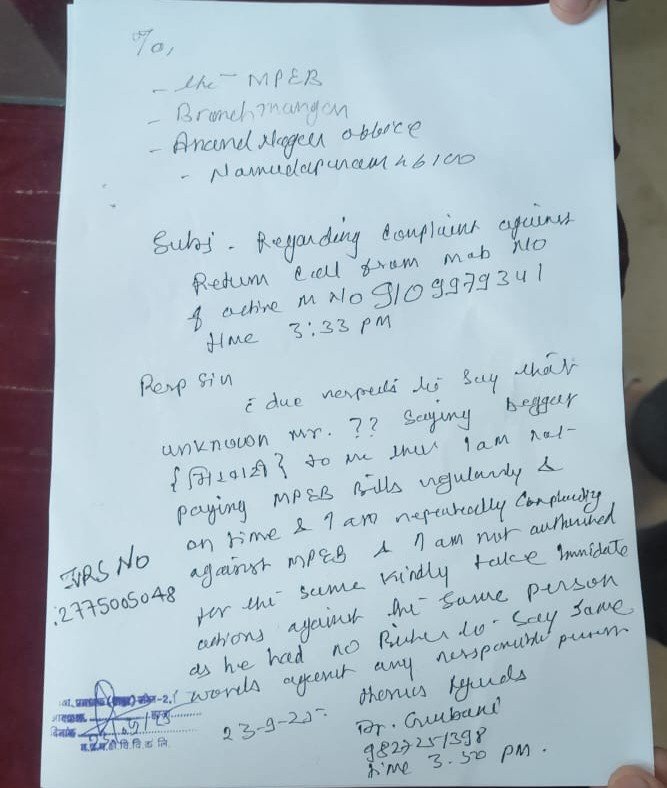 To,
- the MPEB
- Branch manger
- Anand Nager obbice
- Narmadapuram 46100
Subj - Regarding Complaint against
Return Call from Mob No
of active M No 9109979341
time 3:33 PM
Resp Sir
c due respects to say that
unknown Mr. ?? Saying beggar
{भिखारी} to me thus I am not
paying MPEB Bills regularly &
on time & I am repeatedly Complaining
against MPEB & I am not authorised
for the same kindly take Immidate
actions against the same person
as he had no to say same
words against any responsible person
IVRS NO
:2775005048
thanks Reguds
Dr. Gurbani
9827251398
time 3.50 PM.
23-9-25
(शहर) झोन-2,
आवक क्र.
दिनांक
म.प्र.म.क्षे.वि.वि.क लि.